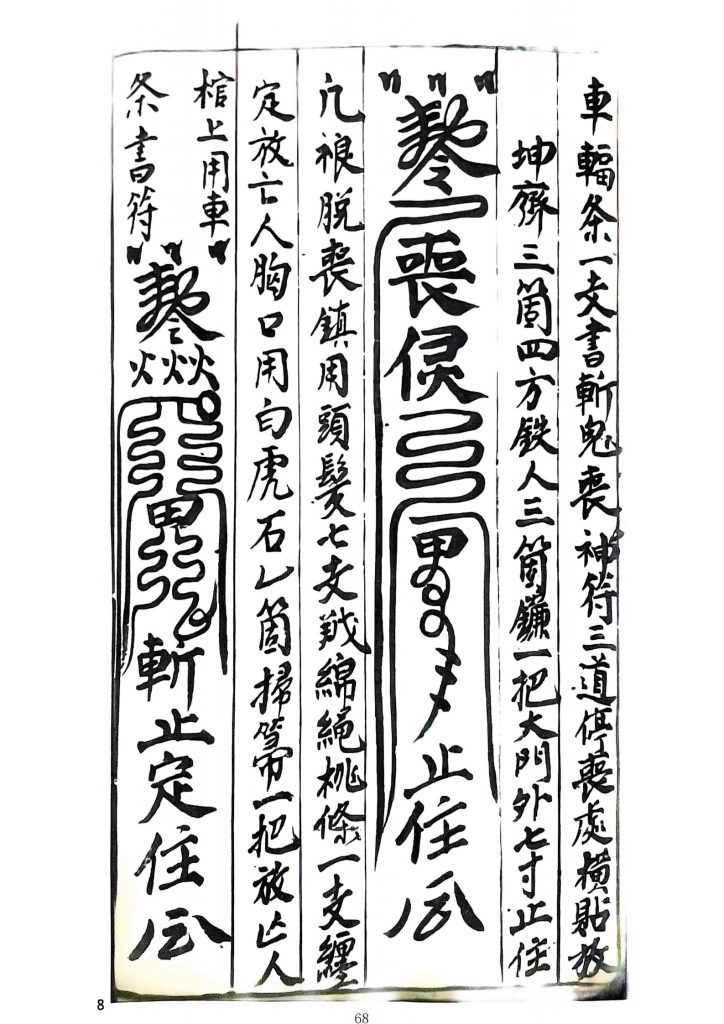 車輻条一支書斬鬼喪神符三道停喪處横貼放
坤齊三箇四方鉄人三箇鐮一把大門外七寸止住
喪
止住
脱喪鎮用頭髮七支 綿繩桃條一支纏
定放亡人胸口用白虎石乙箇掃箒一把放亡人
棺上用車
条書符
斬止定住
8
68